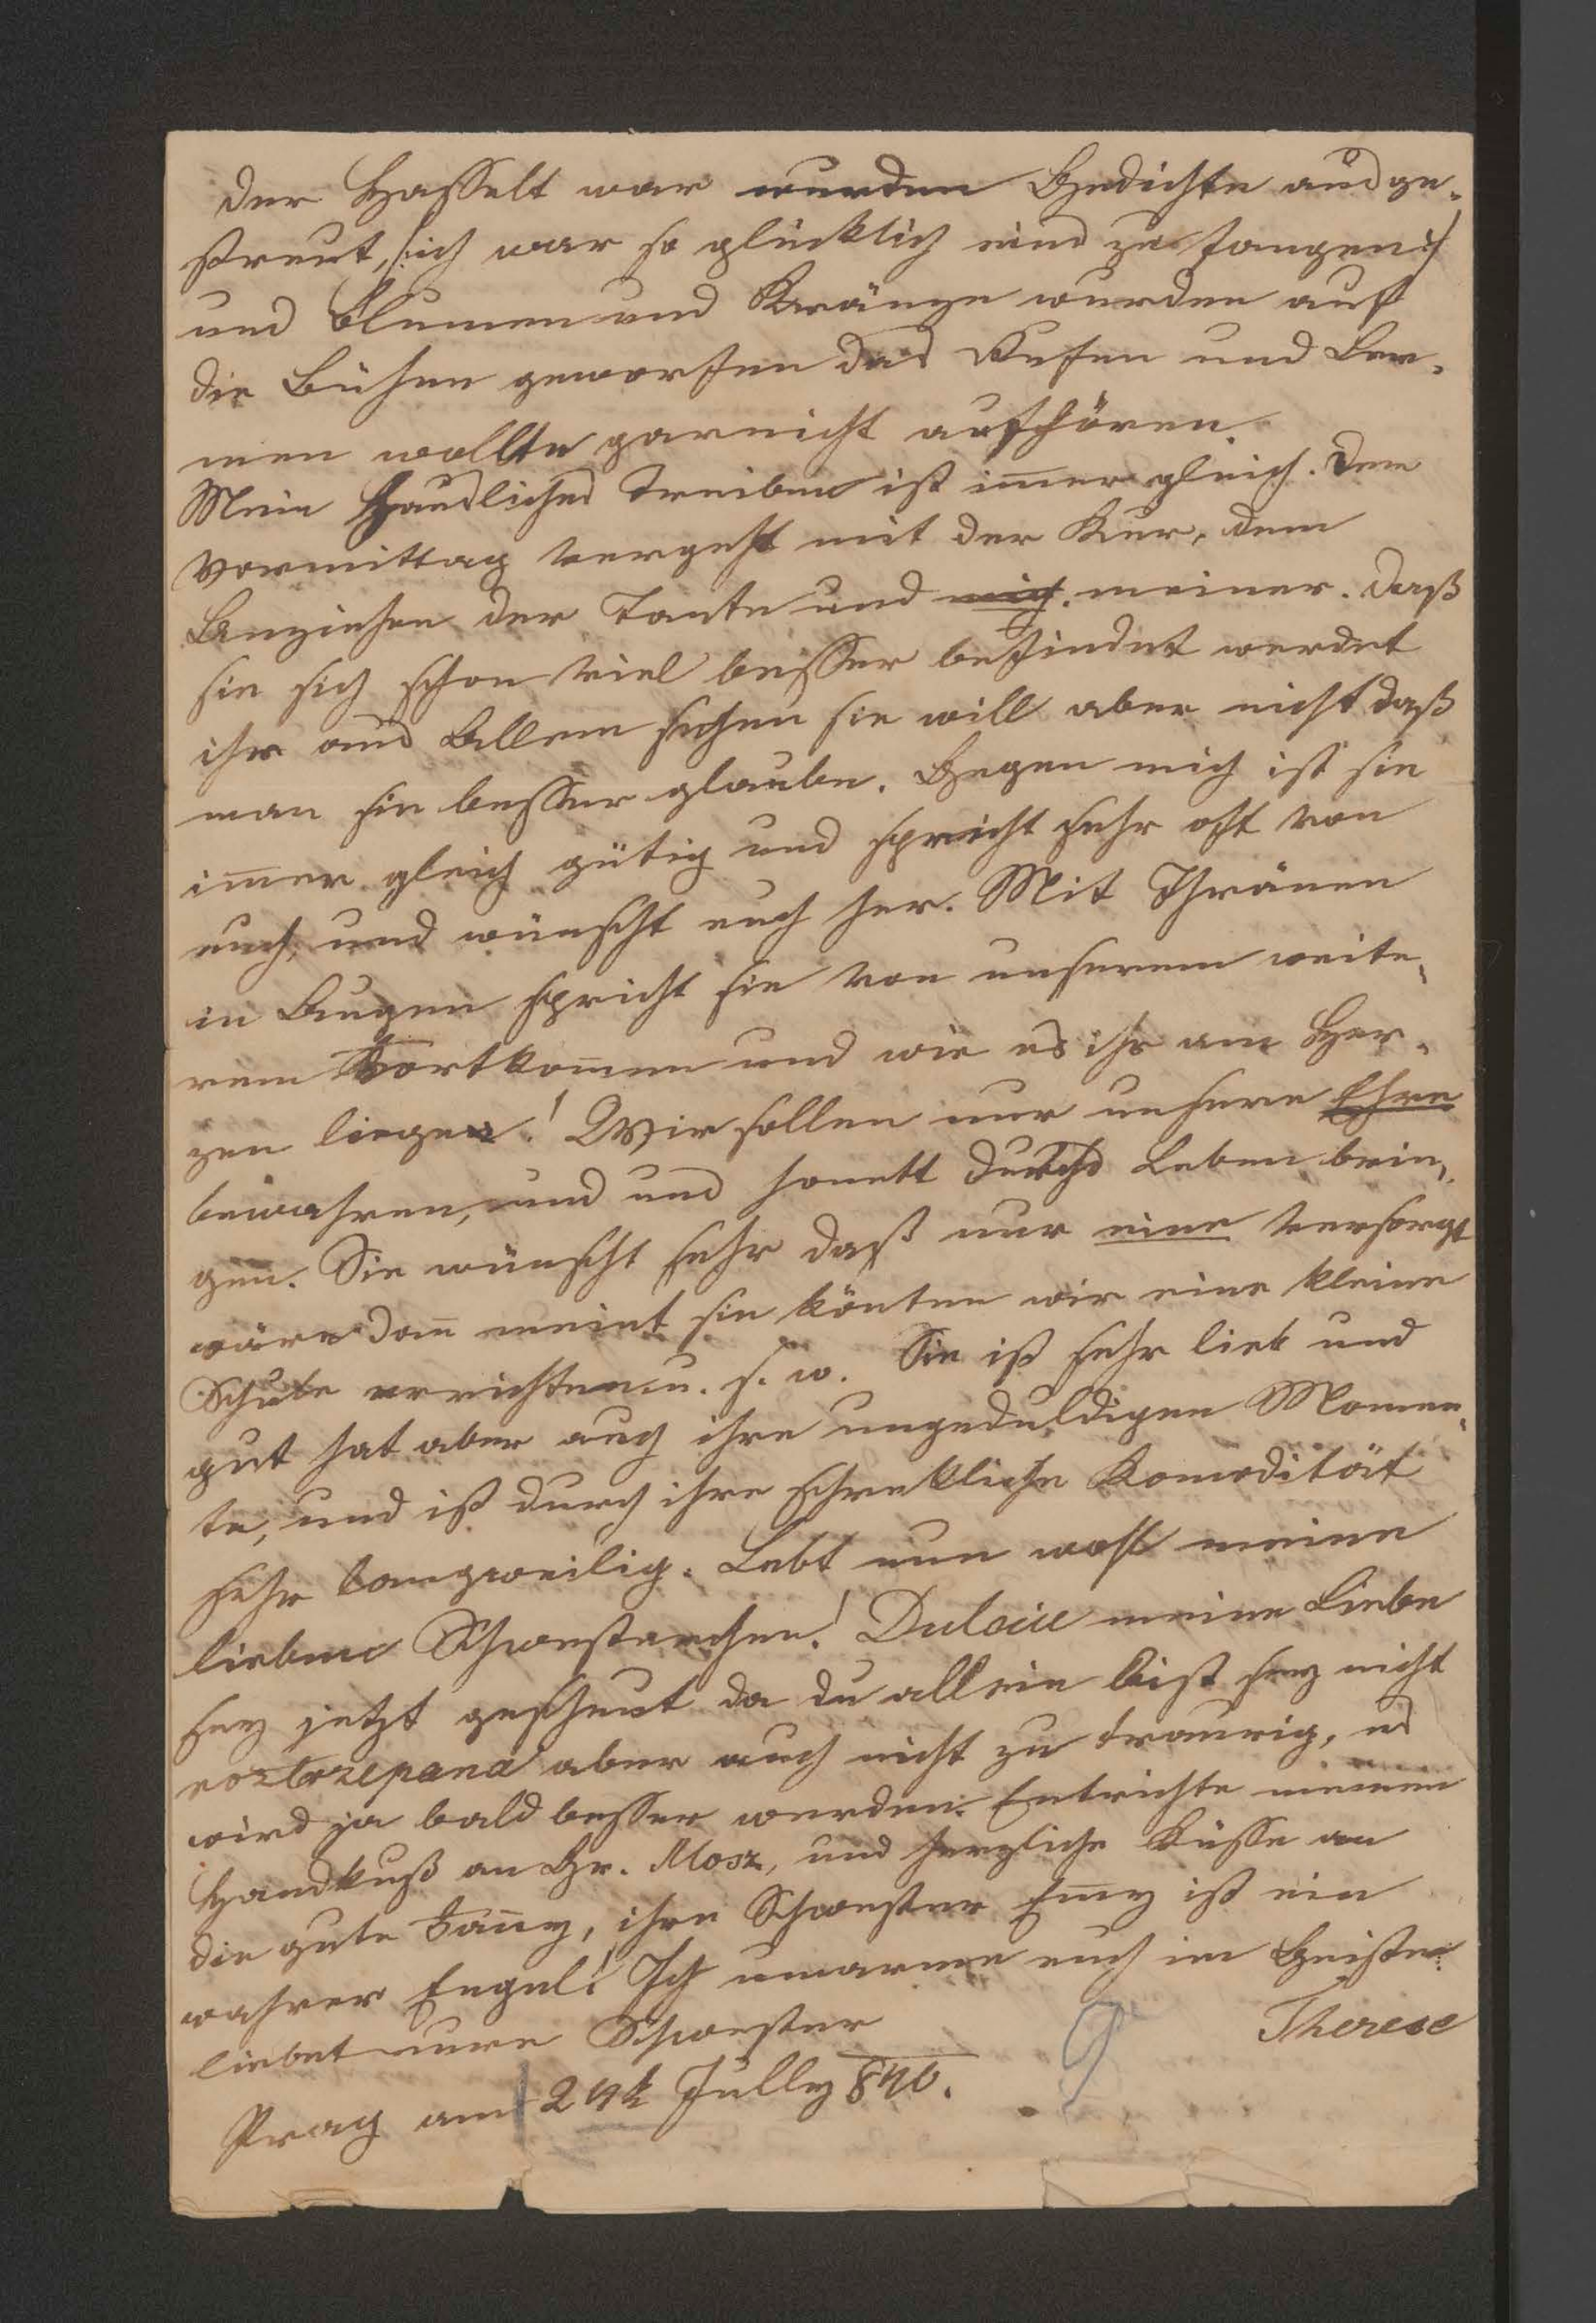 der Hasselt war wurden Gedichte ausge-
streut, (:ich war so glücklich eins zu fangen:)
und Blumen und Kränze wurden auf
die Bühen geworfen das Rufen und Ler-
men wollte garnicht aufhören.
Mein Häusliches Treiben ist immer gleich. Den
Vormittag vergeht mit der Kur, dem
Anziehen der Tante und mich meiner. Daß
sie sich schon viel besser befindet werdet
ihr aus Allem sehen sie will aber nicht daß
man sie besser glaube. Gegen mich ist sie
immer gleich gütig und spricht sehr oft von
euch, und wünscht euch her. Mit Thränen
in Augen spricht sie von unserem weite-
rem Fortkommen und wie es ihr am Her-
zen liege! Wir sollen nur unsere Ehre
bewahren, und uns honett durchs Leben brin-
gen. Sie wünscht sehr daß nur eine versorgt
wäre dann meint sie könten wir eine kleine
Schule errichten u. s. w. Sie ist sehr lieb und
gut hat aber auch ihre ungeduldigen Momen-
te, und ist durch ihre schrekliche Komodität
sehr langweilig. Lebt nun wohl meine
lieben Schwesterchen! Dulcie meine Liebe
sey jetzt gescheut da du allein bist sey nicht
roztrzepana aber auch nicht zu traurig, es
wird ja bald besser werden. Entrichte meinen
Handkuß an Gr. Mosz, und herzliche Küsse an
die gute Fanny, ihre Schwester Emy ist ein
wahrer Engel! Ich umarme euch im Geiste
liebet eure Schwester Therese
Prag am 24t Jully 840.